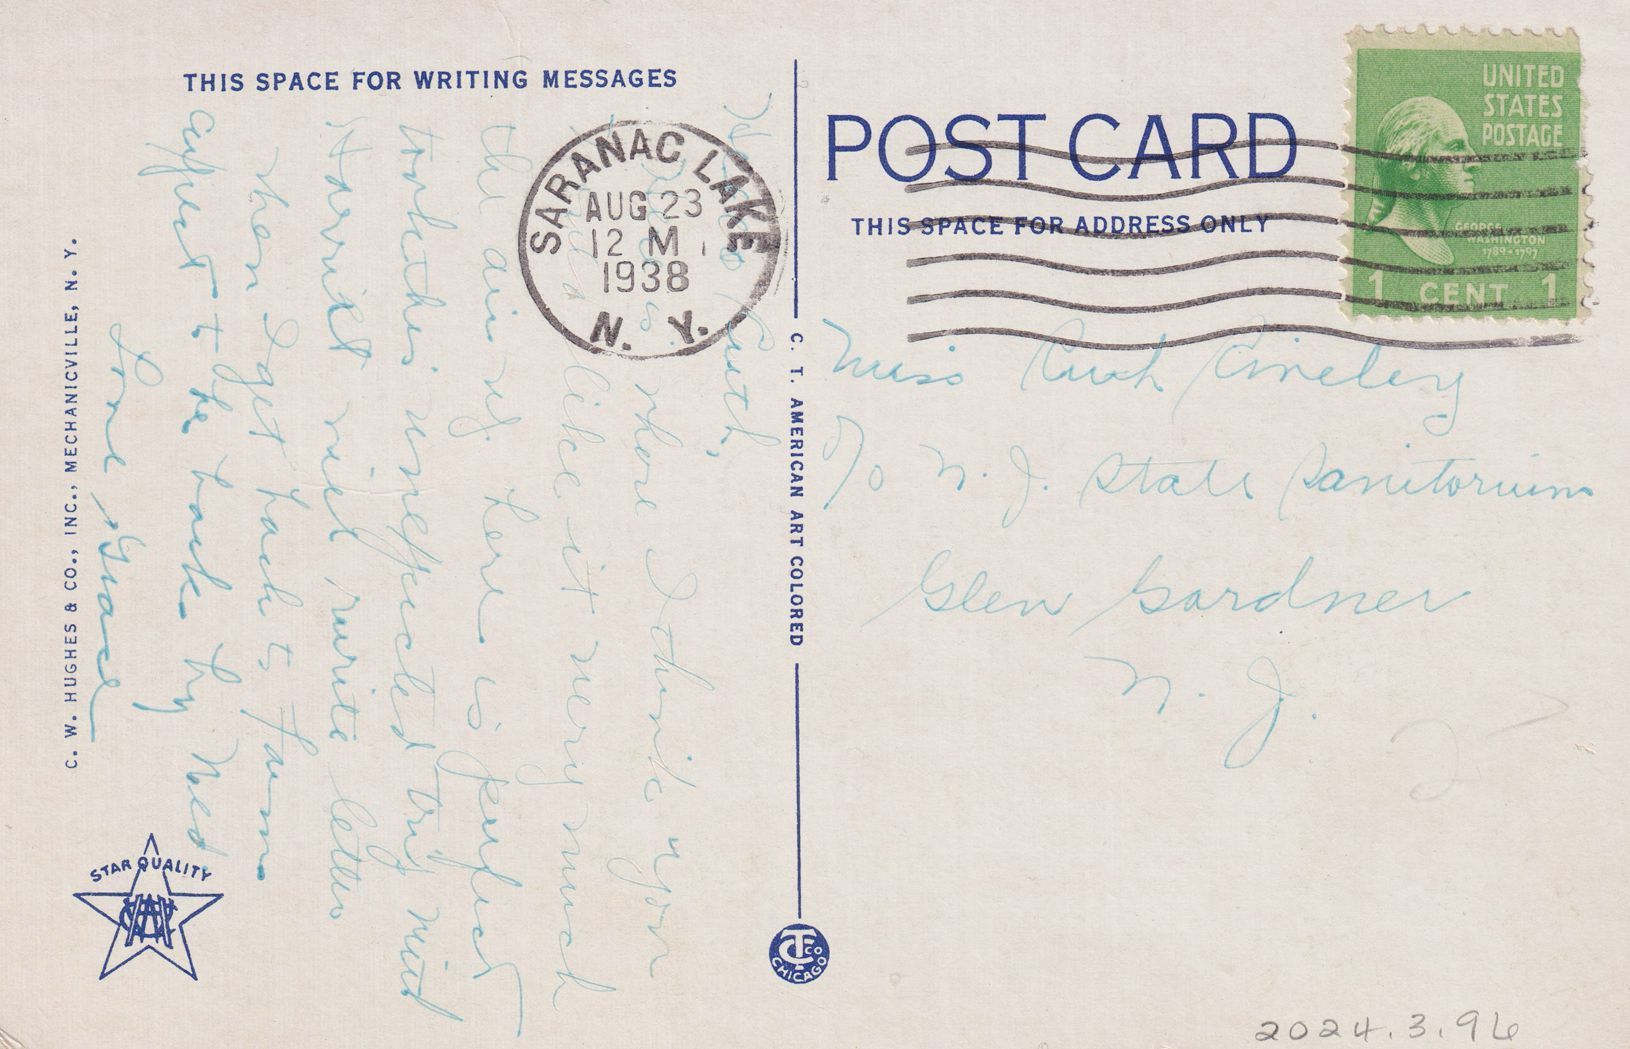 THIS SPACE FOR WRITING MESSAGES
Hello Ruth,
where I think you
like it very much
the air up here is perfect
took this unexpected trip with
Harriet will write letter
when I get back to town
expect to be back by Wed.
Love, Grace
C. W. HUGHES & CO., INC., MECHANICVILLE, N. Y.
STAR QUALITY
SARANAC LAKE
AUG 23
12 M
1938
N. Y.
C. T. AMERICAN ART COLORED
CTCO
CHICAGO
POST CARD
THIS SPACE FOR ADDRESS ONLY
UNITED
STATES
POSTAGE
GEORGE
WASHINGTON
1789-1797
1 CENT 1
Miss Ruth
c/o N. J. State Sanitorium
Glen Gardner
N. J.
2024.3.96